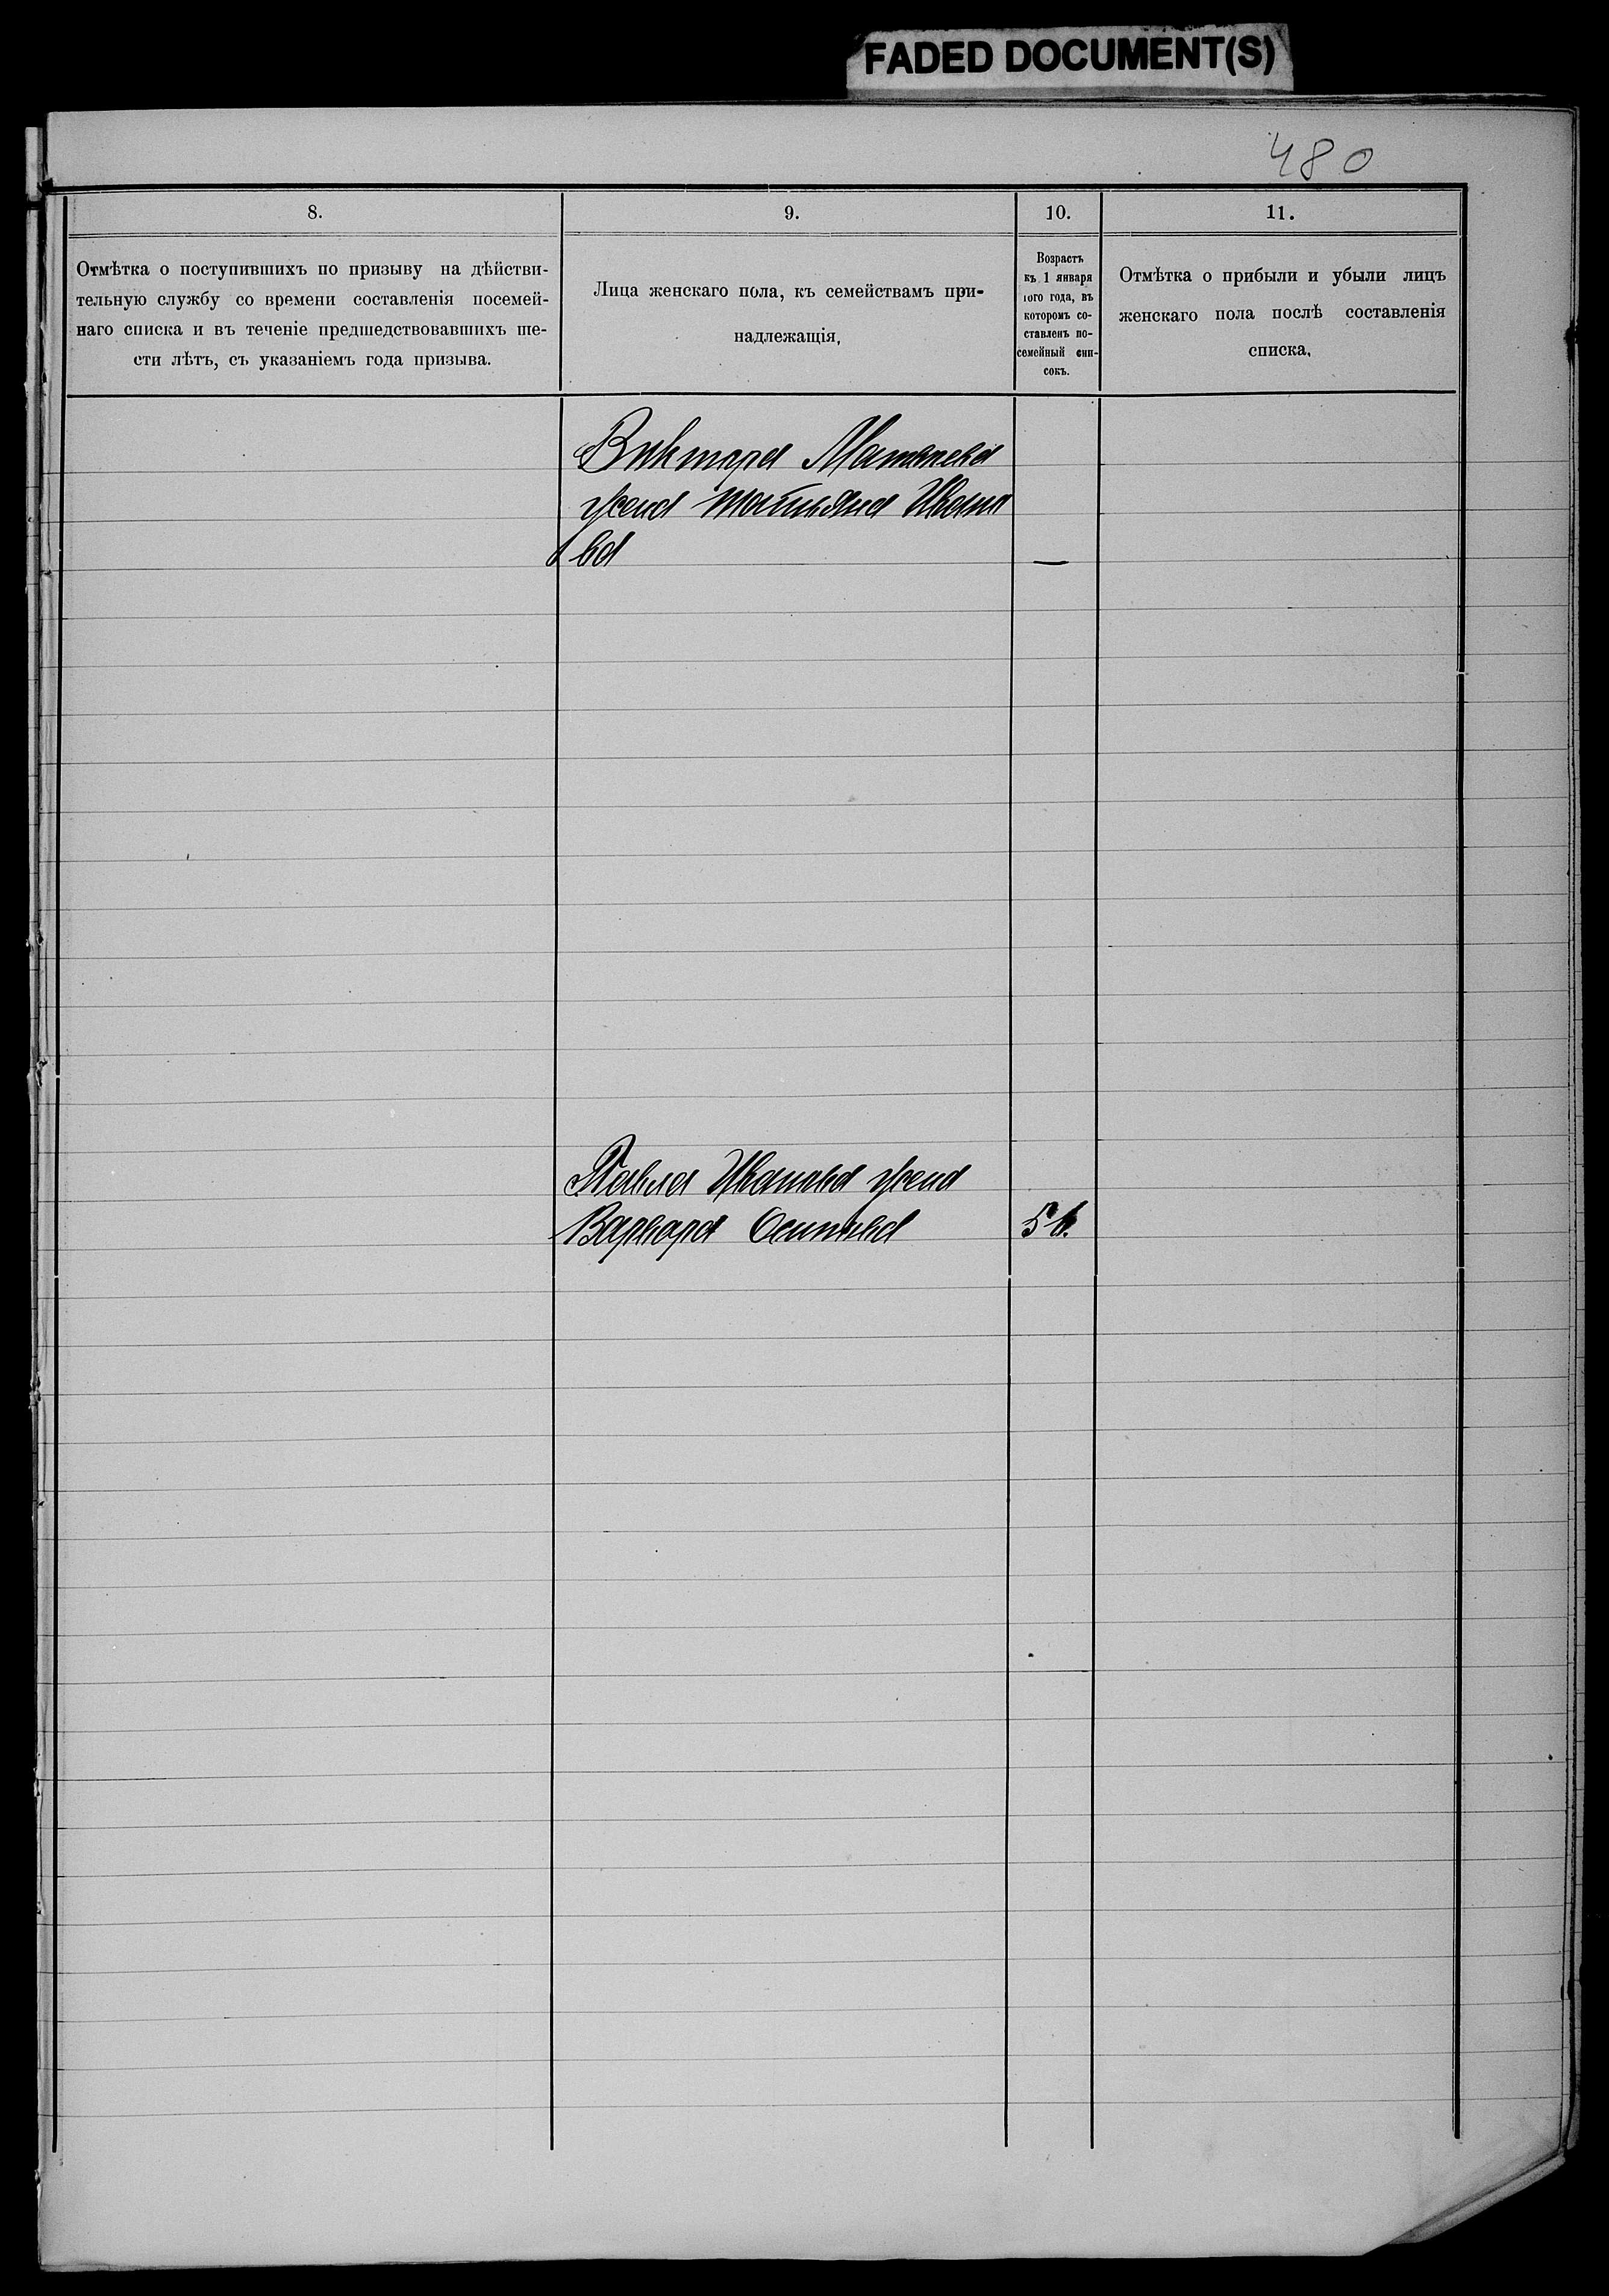 FADED DOCUMENT(S)
480
8.
9.
10.
11.
Отмѣтка о поступившихъ по призыву на дѣйстви-
тельную службу со времени составленія посемей-
наго списка и въ теченіе предшедствовавшихъ ше-
сти лѣтъ, съ указаніемъ года призыва.
Лица женскаго пола, къ семействамъ при-
надлежащія,
Возрастъ
къ 1 января
того года, въ
которомъ со-
ставленъ по-
семейный спи-
сокъ.
Отмѣтка о прибыли и убыли лицъ
женскаго пола послѣ составленія
списка.
Виктора
жена Татьяна Ивано
ва
—
Павла Иванова жена
Варвара Осипова